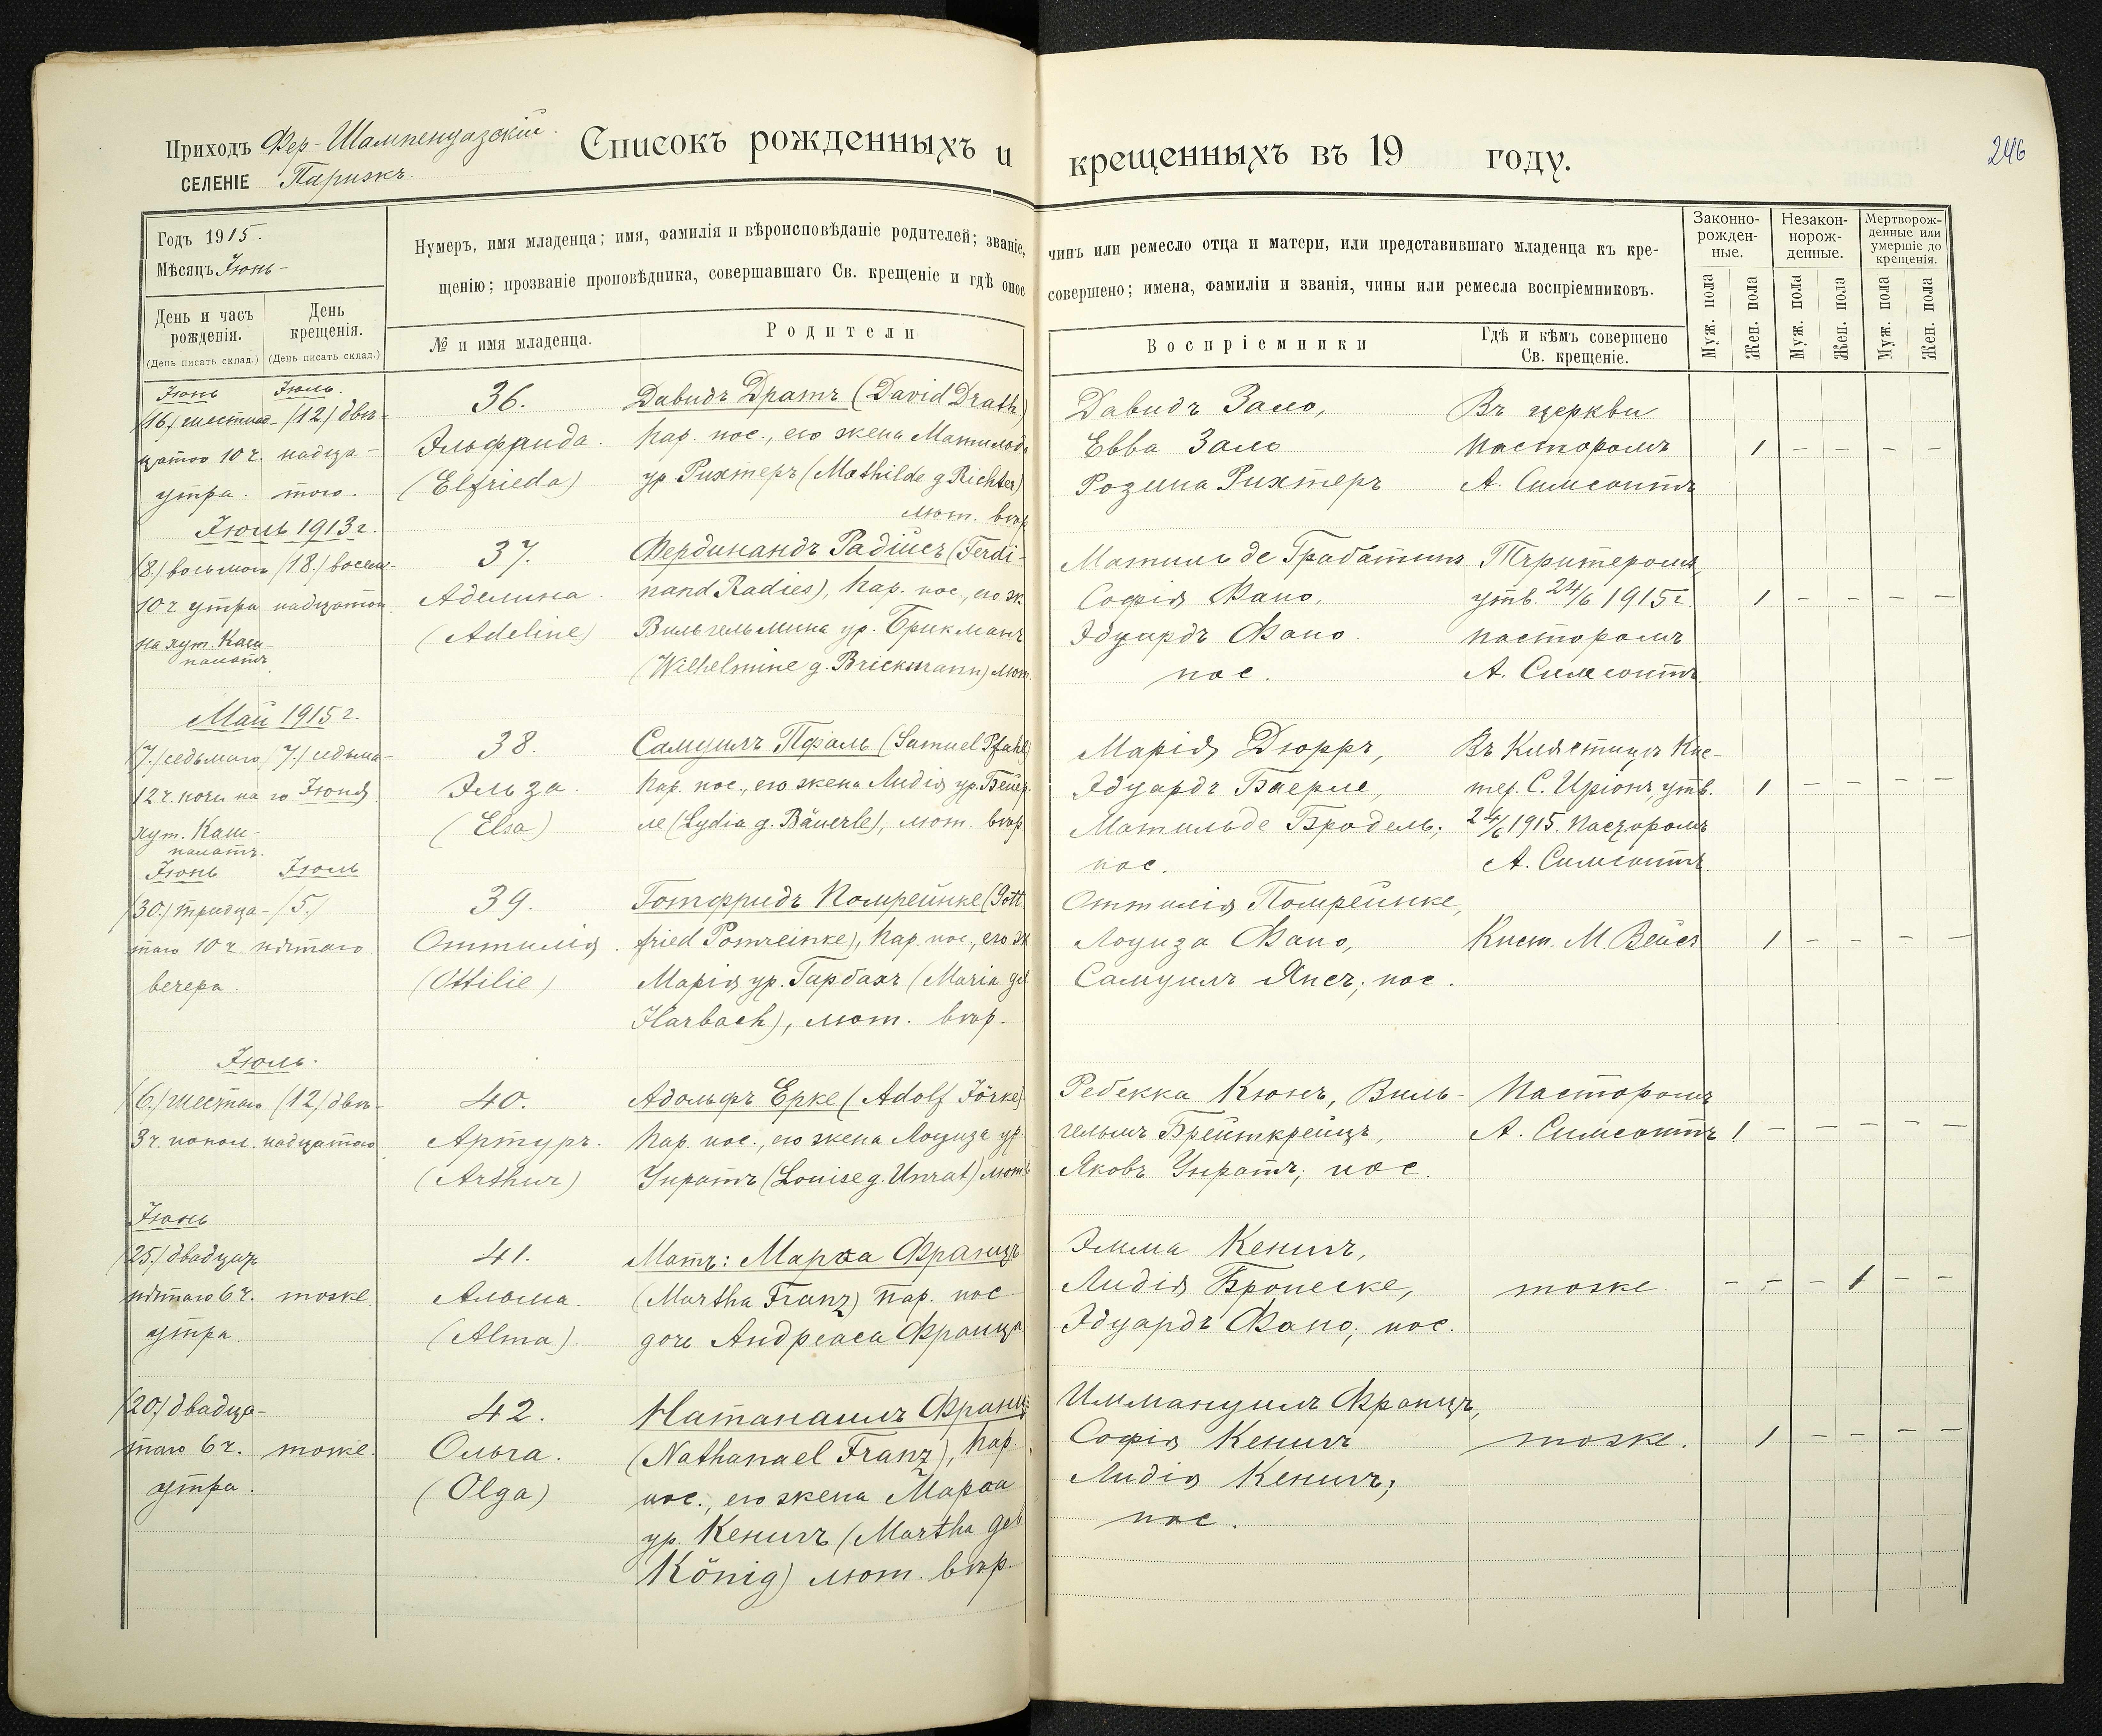 246
Приходъ Фер-Шампенуазскій.
СЕЛЕНІЕ Парижъ.
Списокъ рожденныхъ и крещенныхъ въ 19 году.
Годъ 1915.
Мѣсяцъ Іюнь-
Нумеръ, имя младенца; имя, фамилія и вѣроисповѣданіе родителей; званіе, чинъ или ремесло отца и матери, или представившаго младенца къ кре-
щенію; прозваніе проповѣдника, совершавшаго Св. крещеніе и гдѣ оное совершено; имена, фамиліи и званія, чины или ремесла воспріемниковъ.
Законно-
рожден-
ные.
Незакон-
норож-
денные.
Мертворож-
денные или
умершіе до
крещенія.
День и часъ
рожденія.
(День писать склад.)
День
крещенія.
(День писать склад.)
№ и имя младенца.
Родители
Воспріемники
Гдѣ и кѣмъ совершено
Св. крещеніе.
Муж. пола
Жен. пола
Муж. пола
Жен. пола
Муж. пола
Жен. пола
Іюнь
(16) шестнад-
цатого 10 ч.
утра.
Іюль.
(12) двѣ-
надца-
того.
36.
Эльфрида.
(Elfrieda)
Давидъ Дратъ (David Drath)
пар. пос., его жена Матильда
ур. Рихтеръ (Mathilde g Richter)
лют. вѣр
Давидъ Зало,
Евва Зало
Розина Рихтеръ
Въ церкви
пасторомъ
А.
1 – – – –
Іюль 1913 г.
(8.) восьмого
10 ч. утра
на хут.
(18.) восем-
надцатого
37.
Аделина.
(Adeline)
Фердинандъ Радійсъ (Ferdi-
nand Radies), пар. пос., его ж
Вильгельмина ур. Брикманъ
(Wilhelmine g. Brickmann) лют.
Матильде
Софія
Эдуардъ
пос.
утв. 24/6 1915 г.
пасторомъ
А.
1 – – – –
Май 1915 г.
(7.) седьмого
12 ч. ночи на
хут.
(7.) седьма-
го Іюня
38.
Эльза.
(Elsa)
Самуилъ Пфаль (Samuel Pfahl)
пар. пос., его жена Лидія ур. Бейер-
ле (Lydia g. Bäuerle), лют. вѣр
Марія Дюрръ,
Эдуардъ Баерле,
Матильде Бродель,
пос.
Въ Клястицѣ Кис-
тер. С. Иріонъ, утв.
24/6 1915. пасторомъ
А.
1 – – – –
Іюнь
(30.) тридца-
таго 10 ч.
вечера.
Іюль
(5.)
пятаго
39.
Оттилія.
(Ottilie)
Готфридъ Помрейнке (Gott
fried Pomreinke), пар. пос., его ж
Марія ур. Гарбахъ (Maria geb
Harbach), лют. вѣр.
Оттилія Помрейнке,
Лоуиза
Самуилъ Янсъ, пос.
Кист. М. Вейсъ
1 – – – –
Іюль.
(6.) шестаго
3 ч. попол.
(12) двѣ-
надцатаго
40.
Артуръ.
(Arthur)
Адольфъ Ерке (Adolf Jörke)
пар. пос., его жена Лоуиза ур
Унратъ (Louise g. Unrat) лют
Ребекка Кюнъ, Виль-
гельмъ Брейткрейцъ,
Яковъ Унратъ, пос.
Пасторомъ
А.
1 – – – – –
Іюнь
(25.) двадцать
пятаго 6 ч.
утра.
тоже.
41.
Альма.
(Alma)
Мать: Марѳа Францъ
(Martha Franz) пар. пос
дочь Андреаса Франца
Эмма Кенигъ,
Лидія Бронеске,
Эдуардъ пос.
тоже.
– – – 1 – –
(20.) двадца-
таго 6 ч.
утра.
тоже.
42.
Ольга.
(Olga)
Натанаилъ Францъ
(Nathanael Franz), пар.
пос., его жена Марѳа
ур. Кенигъ (Martha geb
König) лют. вѣр.
Иммануилъ Францъ,
Софія Кенигъ
Лидія Кенигъ;
пос.
тоже.
1 – – – –